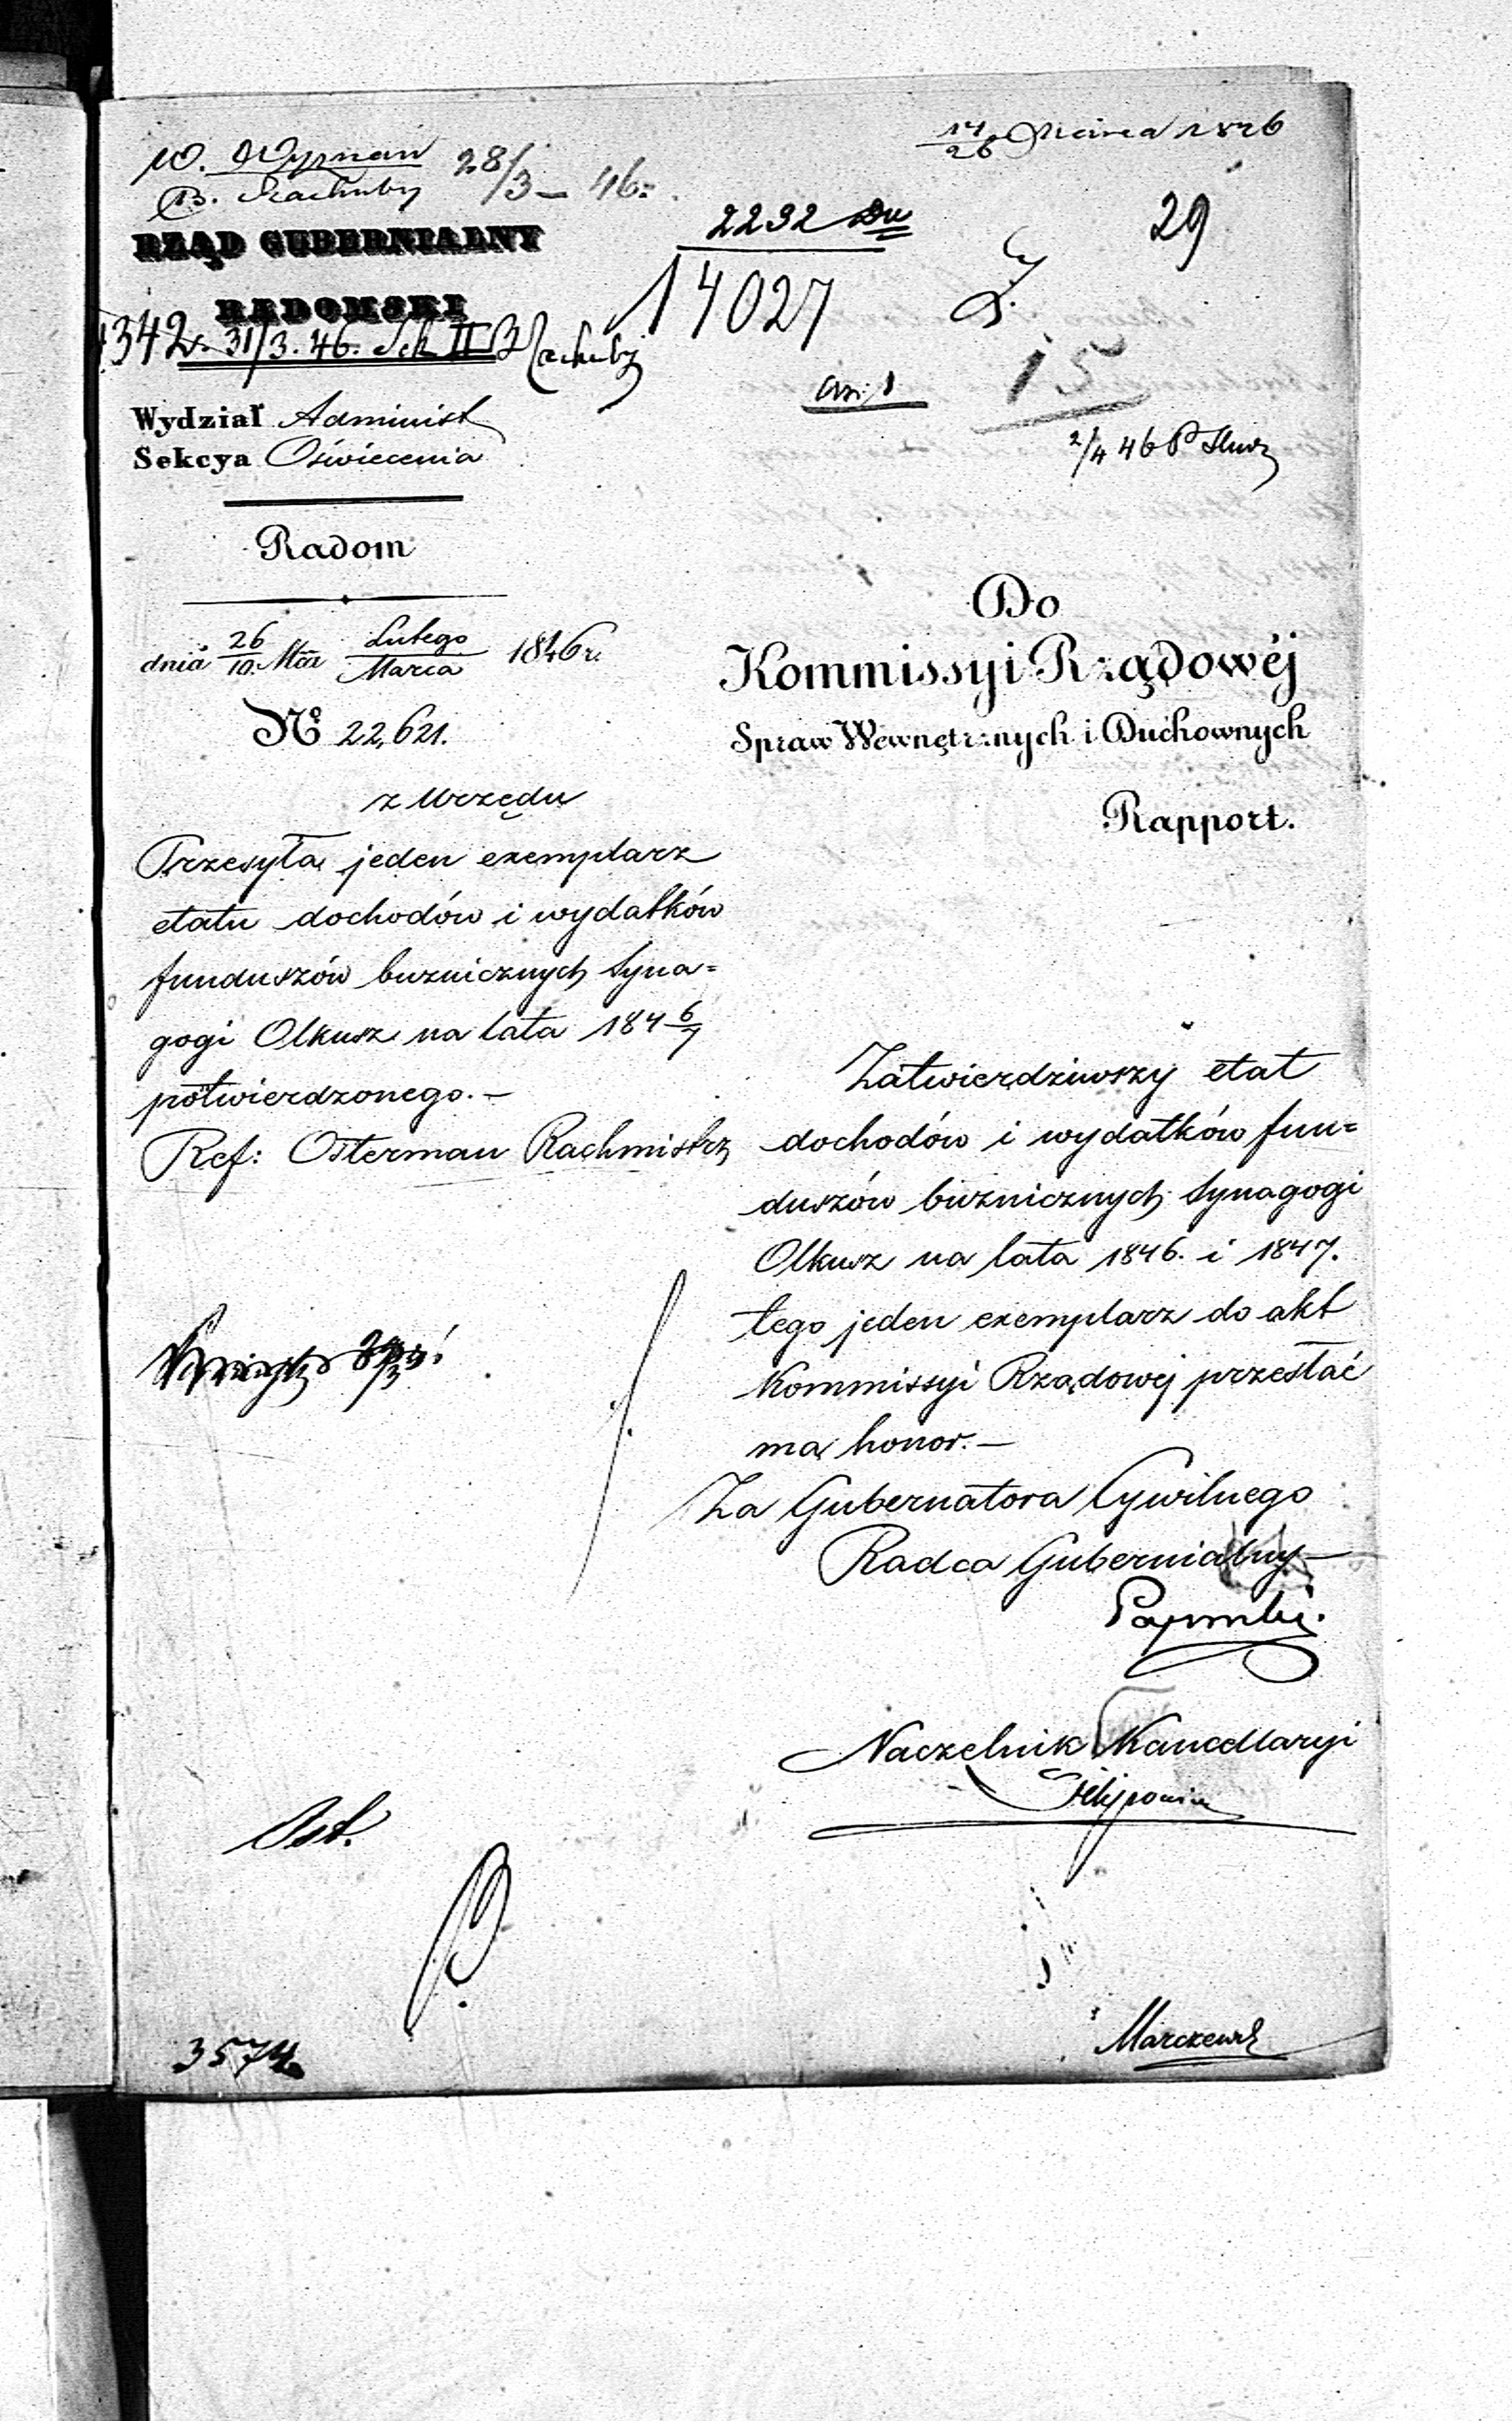 14/26 Marca 1846
W. Wyznań 28/3 – 46.
B. Rachuby
29
RZĄD GUBERNIALNY
RADOMSKI
2292
14027
1342 31/3. 46. Sek II B Rachuby
15
An: 1
2/4 46
Wydział Administ
Sekcya Oświecenia
Radom
dnia 26/10 Mar Lutego/Marca 1846 r.
No 22,621.
z Urzędu
Przesyła jeden exemplarz
etatu dochodów i wydatków
funduszów bużnicznych Syna=
gogi Olkusz na lata 184 6/7
potwierdzonego. –
Ref: Osterman Rachmistrz
Do
Kommissyi Rządowéj
Spraw Wewnętrznych i Duchownych
Rapport.
Zatwierdziwszy etat
dochodów i wydatków fun=
duszów bużnicznych Synagogi
Olkusz na lata 1846. i 1847.
tego jeden exemplarz do akt
Kommissyi Rządowej przesłać
ma honor. –
Za Gubernatora Cywilnego
Radca Gubernialny –
Naczelnik Kancellaryi
Ost.
3574